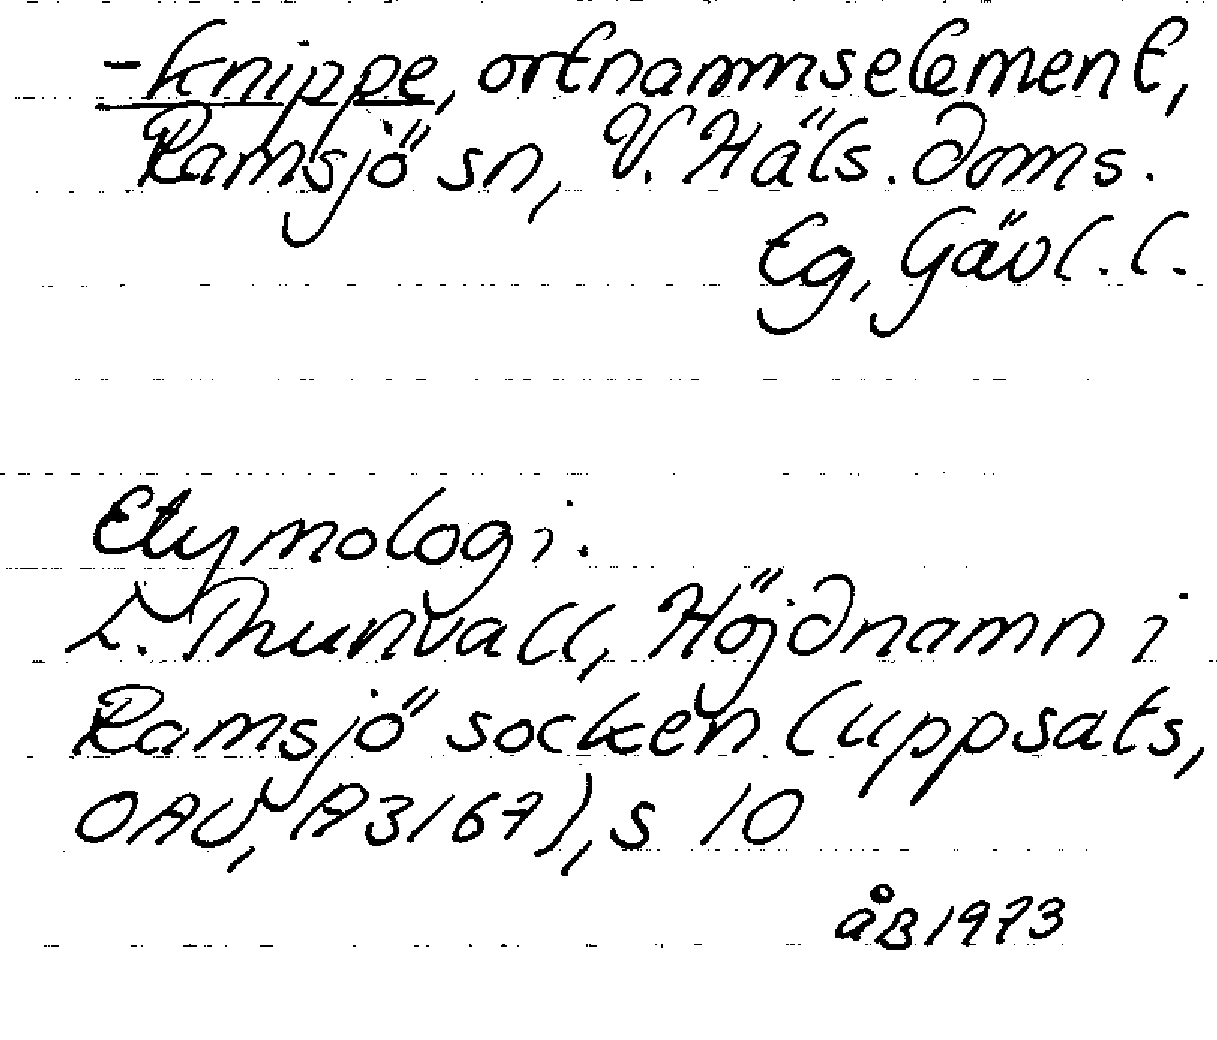 -knippe, ortnamnselement,
Ramsjö sn, V. Häls. doms.
Eg, Gävl. l.
Etymologi.
L. Thunvall, Höjdnamn i
Ramsjö socken (uppsats,
OAU, A3167), s 10
åB1973